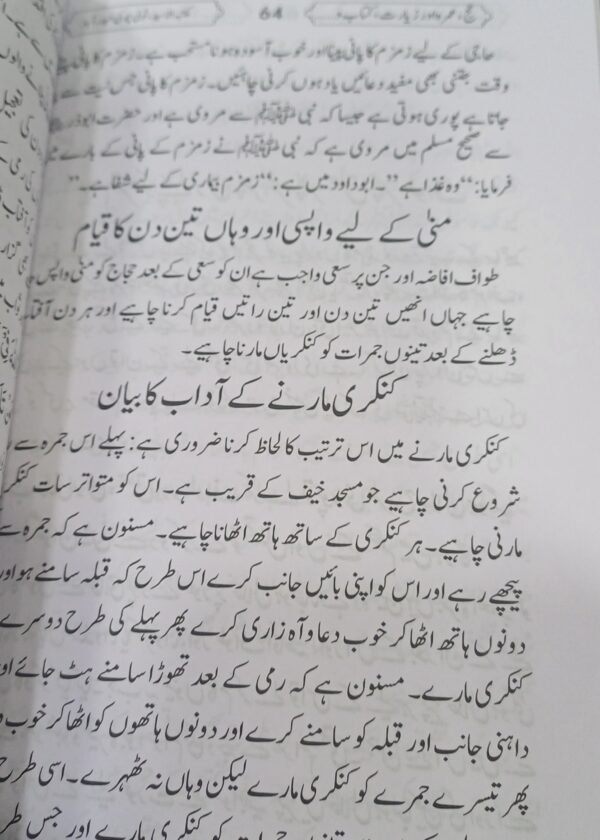 حج، عمرہ اور زیارت، کتاب و
64
حاجی کے لیے زمزم کا پانی پینا اور خوب آسودہ ہونا مستحب ہے۔ زمزم کا پانی پیتے
وقت جتنی بھی مفید دعائیں یاد ہوں کرنی چاہئیں۔ زمزم کا پانی جس نیت سے
جاتا ہے پوری ہوتی ہے جیسا کہ نبی ﷺ سے مروی ہے اور حضرت ابوذر
سے صحیح مسلم میں مروی ہے کہ نبی ﷺ نے زمزم کے پانی کے بارے میں
فرمایا: ‘‘وہ غذا ہے’’۔ ابوداود میں ہے: ‘‘زمزم بیماری کے لیے شفا ہے۔’’
منٰی کے لیے واپسی اور وہاں تین دن کا قیام
طواف افاضہ اور جن پر سعی واجب ہے ان کو سعی کے بعد حجاج کو منٰی واپس
چاہیے جہاں انھیں تین دن اور تین راتیں قیام کرنا چاہیے اور ہر دن آفتاب
ڈھلنے کے بعد تینوں جمرات کو کنکریاں مارنا چاہیے۔
کنکری مارنے کے آداب کا بیان
کنکری مارنے میں اس ترتیب کا لحاظ کرنا ضروری ہے: پہلے اس جمرہ سے
شروع کرنی چاہیے جو مسجد خیف کے قریب ہے۔ اس کو متواتر سات کنکر
مارنی چاہیے۔ ہر کنکری کے ساتھ ہاتھ اٹھانا چاہیے۔ مسنون ہے کہ جمرہ سے
پیچھے رہے اور اس کو اپنی بائیں جانب کرے اس طرح کہ قبلہ سامنے ہو اور
دونوں ہاتھ اٹھا کر خوب دعا و آہ زاری کرے پھر پہلے کی طرح دوسرے
کنکری مارے۔ مسنون ہے کہ رمی کے بعد تھوڑا سامنے ہٹ جائے اور
داہنی جانب اور قبلہ کو سامنے کرے اور دونوں ہاتھوں کو اٹھا کر خوب
پھر تیسرے جمرے کو کنکری مارے لیکن وہاں نہ ٹھہرے۔ اسی طرح
جمرات کو کنکری مارے اور جس طر